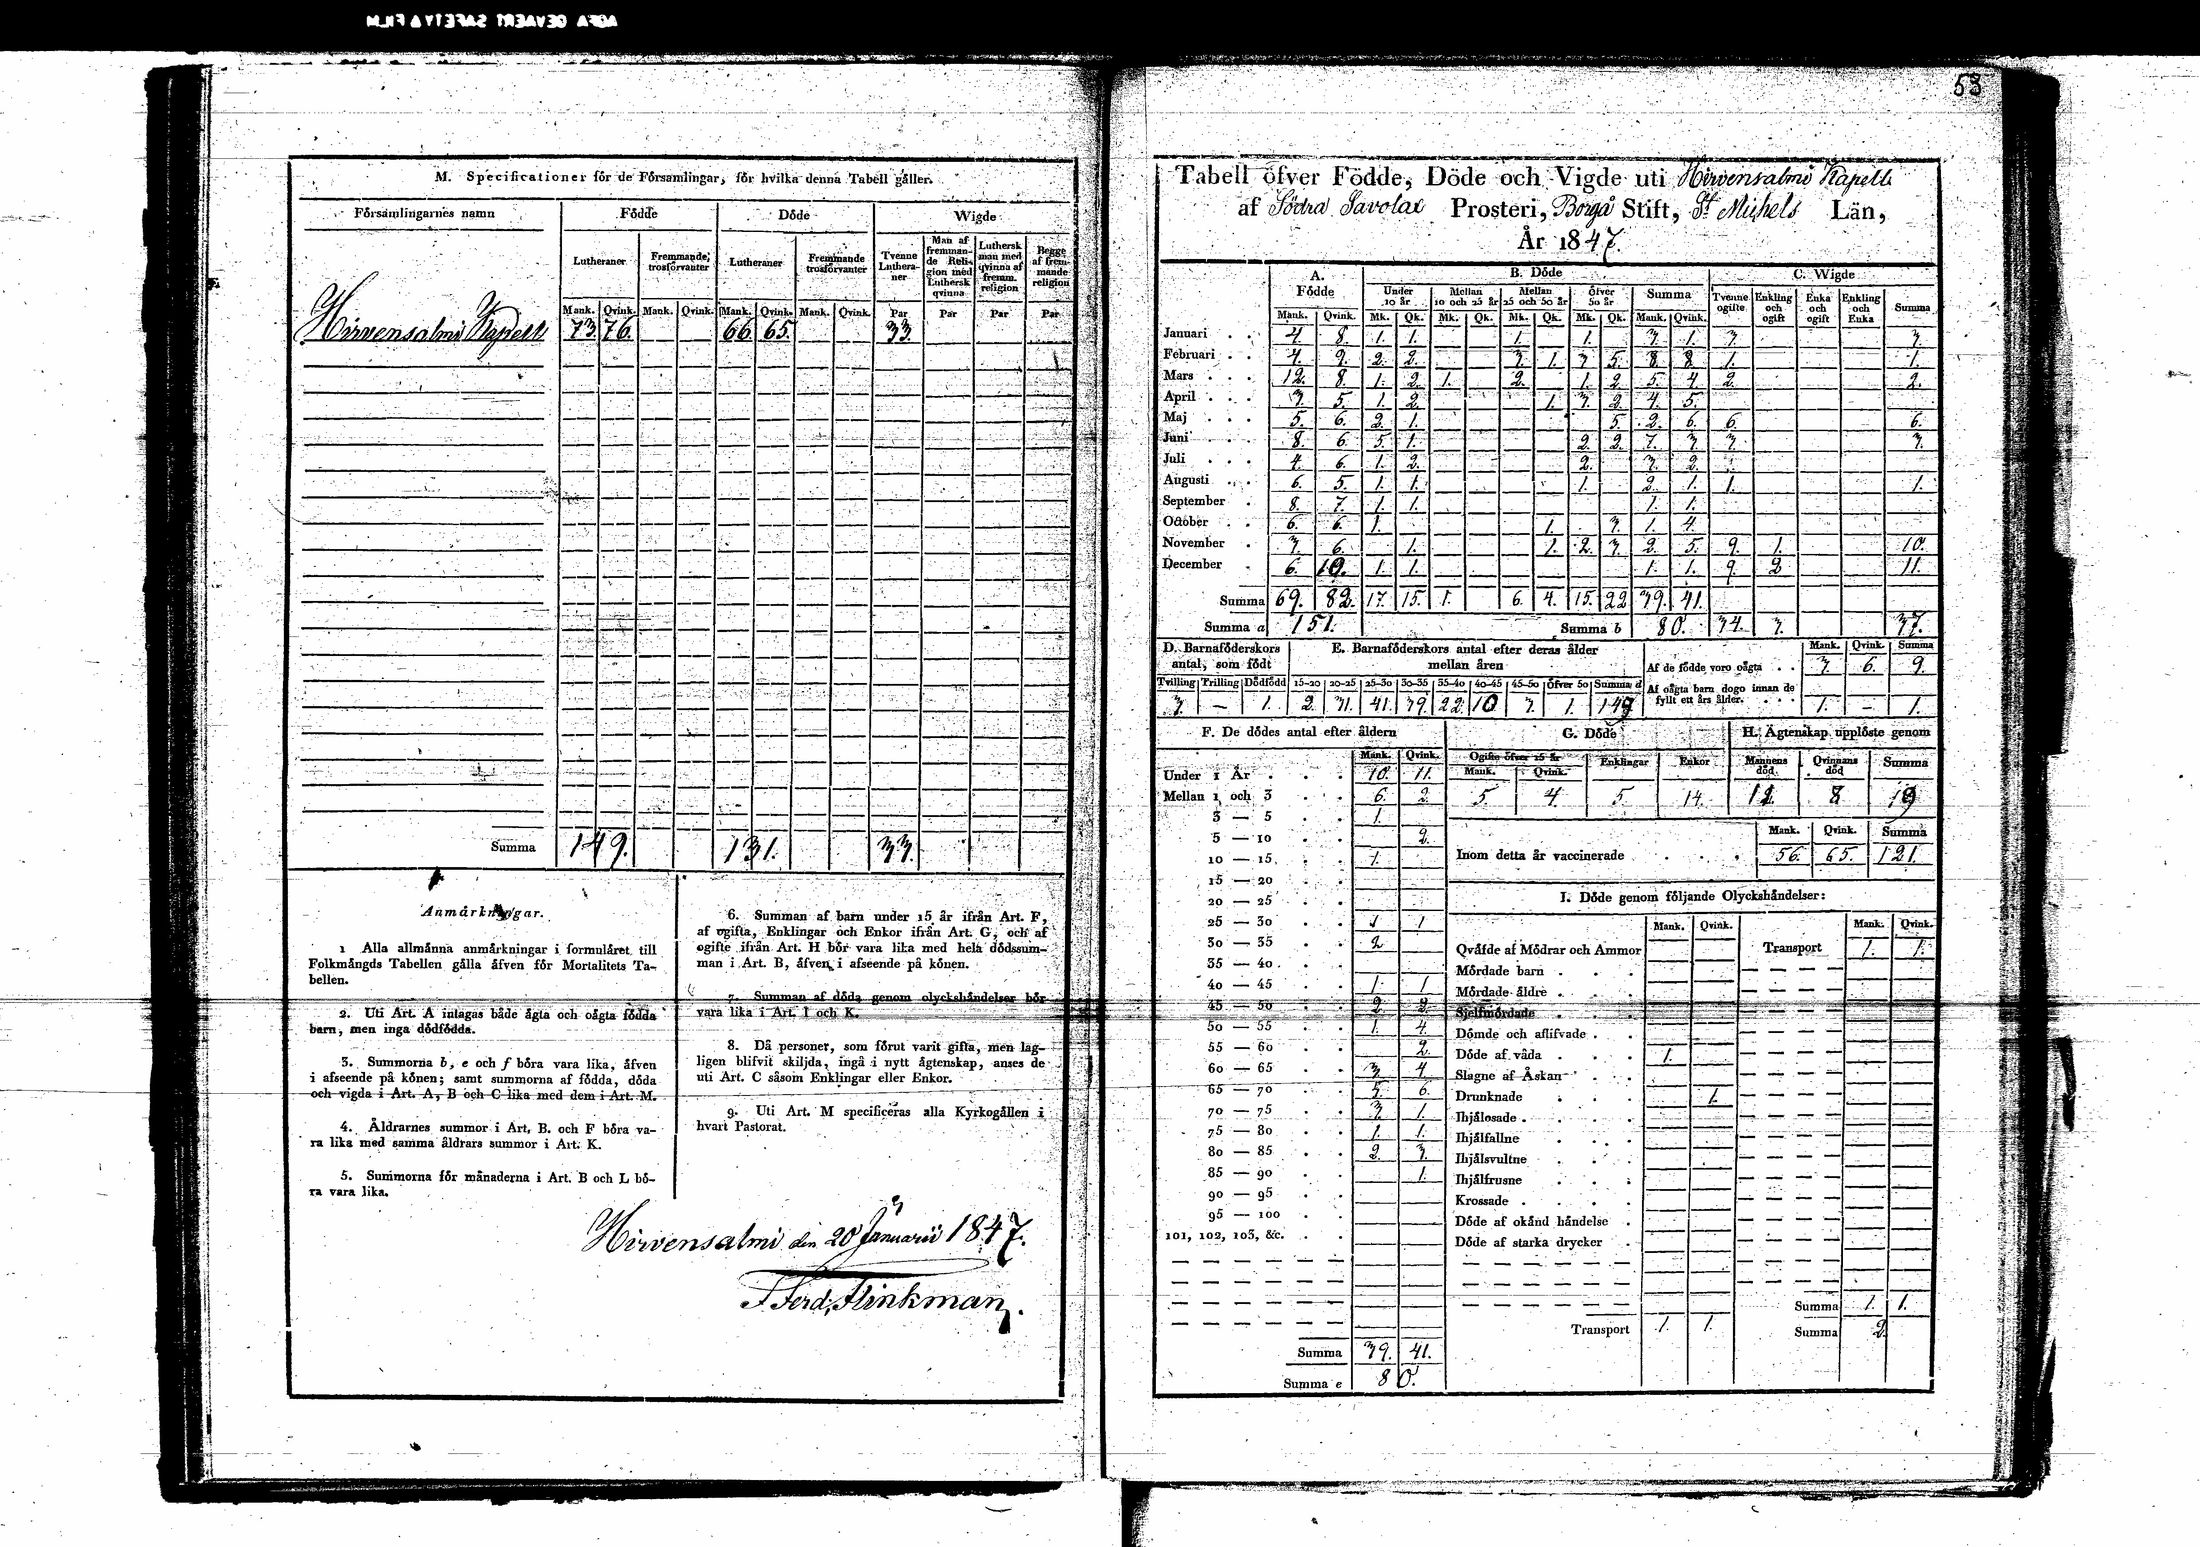 M. Specificationer för de Församlingar, för hvilka denna Tabell gäller.
Församlingarnes namn Födde Döde Wigde
Lutheraner Fremmande trosförvanter Lutheraner Fremmande trosförvanter Tvenne Lutheraner Man af fremmande Religion med Luthersk qvinna Luthersk man med qvinna af fremm. religion Begge af fremmande religion
Mank. Qvink. Mank. Qvink. Mank. Qvink. Mank. Qvink. Par Par Par Par
Hirvensalmi Kapell 73. 76. 66. 65. 33.
Summa 149. 131. 33.
Anmärkningar.
1 Alla allmänna anmärkningar i formuläret till
Folkmängds Tabellen gälla äfven för Mortalitets Ta-
bellen.
2. Uti Art. A intagas både ägta och oägta födda
barn, men inga dödfödda.
3. Summorna b, e och f böra vara lika, äfven
i afseende på könen; samt summorna af födda, döda
och vigda i Art. A, B och C lika med dem i Art. M.
4. Åldrarnes summor i Art. B. och F böra va-
ra lika med samma åldrars summor i Art. K.
5. Summorna för månaderna i Art. B och L bö-
ra vara lika.
6. Summan af barn under 15 år ifrån Art. F,
af ogifta, Enklingar och Enkor ifrån Art. G, och af
ogifte ifrån Art. H bör vara lika med hela dödssum-
man i Art. B, äfven i afseende på könen.
7. Summan af döda genom olyckshändelser bör
vara lika i Art. I och K.
8. Då personer, som förut varit gifta, men lag-
ligen blifvit skiljda, ingå i nytt ägtenskap, anses de
uti Art. C såsom Enklingar eller Enkor.
9. Uti Art. M specificeras alla Kyrkogällen i
hvart Pastorat.
Hirvensalmi den 20 Januarii 1847.
Ferd. Flinkman.
53
Tabell öfver Födde, Döde och Vigde uti Hirvensalmi Kapell
af Södra Savolax Prosteri, Borgå Stift, St Michels Län,
År 1847.
A. Födde B. Döde C. Wigde
Under 10 år Mellan 10 och 25 år Mellan 25 och 50 år Öfver 50 år Summa Tvenne ogifte Enkling och ogift Enka och ogift Enkling och Enka Summa
Mank. Qvink. Mk. Qk. Mk. Qk. Mk. Qk. Mk. Qk. Mank. Qvink.
Januari 4. 8. 1. 1. 1. 1. 3. 1. 3. 3.
Februari 4. 9. 2. 2. 3. 1. 3. 5. 8. 8. 1. 1.
Mars 12. 8. 1. 2. 1. 2. 1. 2. 5. 4. 2. 2.
April 3. 5. 1. 2. 1. 3. 2. 4. 5.
Maj 5. 6. 2. 1. 5. 2. 6. 6. 6.
Juni 8. 6. 5. 1. 2. 2. 7. 3. 3. 3.
Juli 4. 6. 1. 2. 2. 3. 2.
Augusti 6. 5. 1. 1. 1. 2. 1. 1. 1.
September 8. 7. 1. 1. 1. 1.
October 6. 6. 1. 1. 3. 1. 4.
November 3. 6. 1. 1. 2. 3. 2. 5. 9. 1. 10.
December 6. 1. 1. 1. 1. 9. 2 11.
Summa 69. 82. 17. 15. 1. 6. 4. 15. 22 39. 41.
Summa a 151. Summa b 80. 34. 3. 37.
D. Barnaföderskors antal, som födt
E. Barnaföderskors antal efter deras ålder mellan åren
Tvilling Trilling Dödfödd 15-20 20-25 25-30 30-35 35-40 40-45 45-50 Öfver 50 Summa d
3. — 1. 2. 31. 41. 39. 22. 10 3. 1. 149
Mank. Qvink. Summa
Af de födde voro oägta 3. 6. 9.
Af oägta barn dogo innan de fyllt ett års ålder. 1. — 1.
F. De dödes antal efter åldern
Mank. Qvink.
Under 1 År 10. 11.
Mellan 1 och 3 6. 2.
3 — 5 1.
5 — 10 2.
10 — 15 1.
15 — 20
20 — 25
25 — 30 1 1
30 — 35 2
35 — 40
40 — 45 1. 1
45 — 50 2. 2.
50 — 55 1. 4.
55 — 60 2.
60 — 65 3. 4.
65 — 70 5. 6.
70 — 75 3. 1.
75 — 80 1. 1.
80 — 85 2. 3.
85 — 90 1.
90 — 95
95 — 100
101, 102, 103, &c.
Summa 39. 41.
Summa e 80.
G. Döde
Ogifte öfver 15 år Enklingar Enkor
Mank. Qvink.
5. 4. 5. 14.
H. Ägtenskap upplöste genom
Mannens död Qvinnans död Summa
8
Mank. Qvink. Summa
Inom detta år vaccinerade 56. 65. 121.
I. Döde genom följande Olyckshändelser:
Mank. Qvink. Mank. Qvink.
Qväfde af Mödrar och Ammor Transport 1. 1.
Mördade barn
Mördade äldre
Sjelfmördade
Dömde och aflifvade
Döde af våda 1.
Slagne af Åskan
Drunknade 1.
Ihjälosade
Ihjälfallne
Ihjälsvultne
Ihjälfrusne
Krossade
Döde af okänd händelse
Döde af starka drycker
Summa 1. 1.
Transport 1. 1. Summa 2.